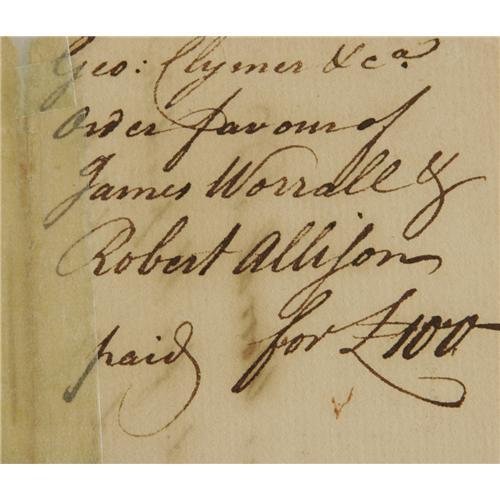 Geo: Clymer & Ca
Order favour of
James Worrall &
Robert Allison
paid for £100